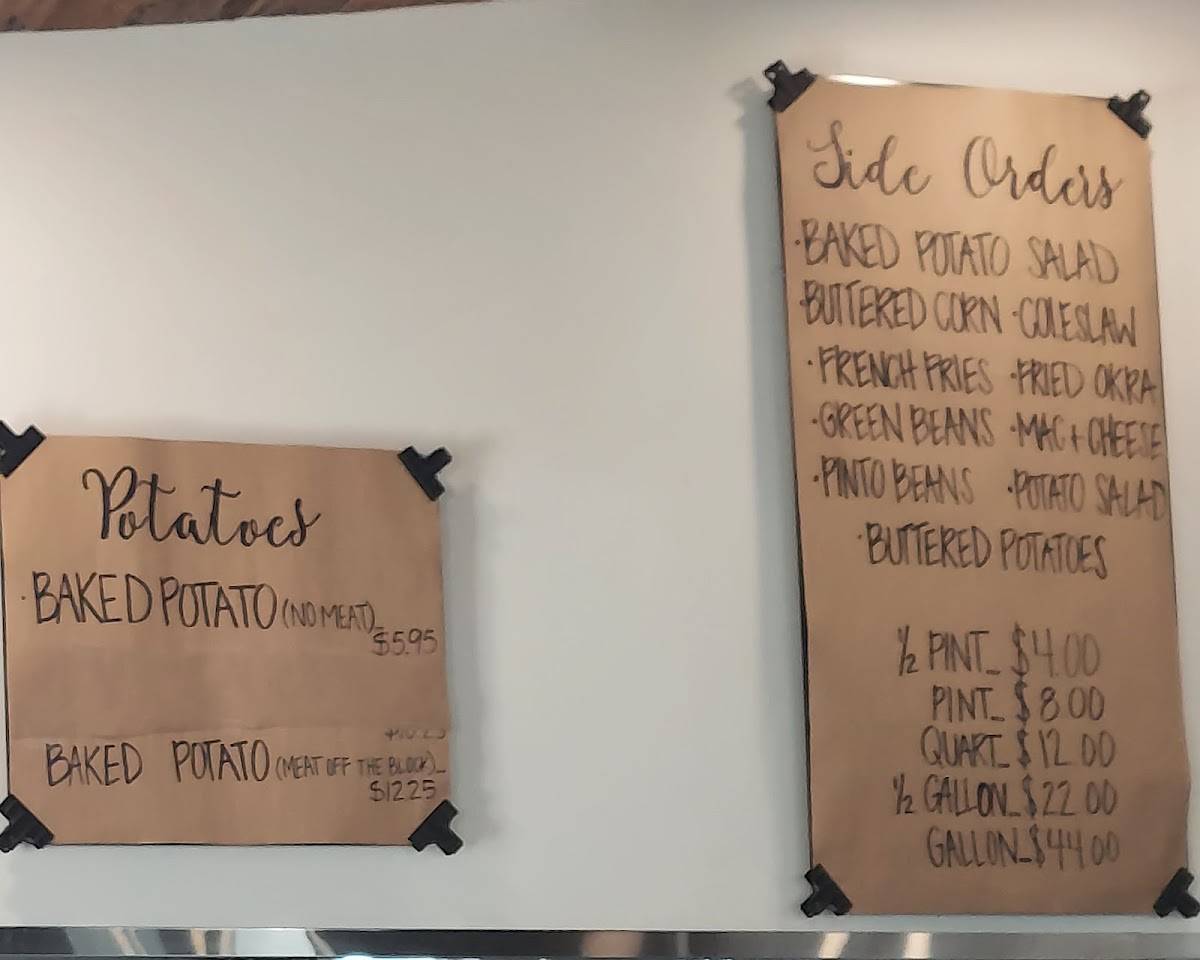 Potatoes
·BAKED POTATO (NO MEAT)_
$5.95
BAKED POTATO (MEAT OFF THE BLOCK)_
$12.25
Side Orders
·BAKED POTATO SALAD
·BUTTERED CORN ·COLESLAW
·FRENCH FRIES ·FRIED OKRA
·GREEN BEANS ·MAC + CHEESE
·PINTO BEANS ·POTATO SALAD
·BUTTERED POTATOES
1/2 PINT_ $4.00
PINT_ $8.00
QUART_ $12.00
1/2 GALLON_ $22.00
GALLON_ $44.00